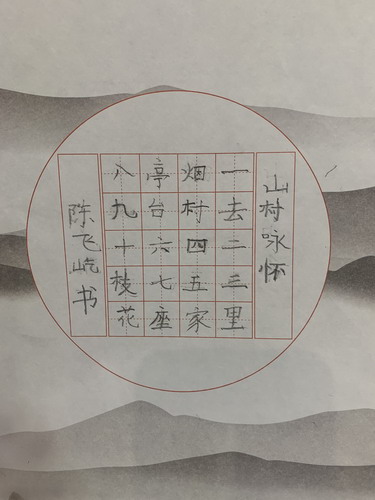 山村咏怀
一去二三里
烟村四五家
亭台六七座
八九十枝花
陈飞屹书